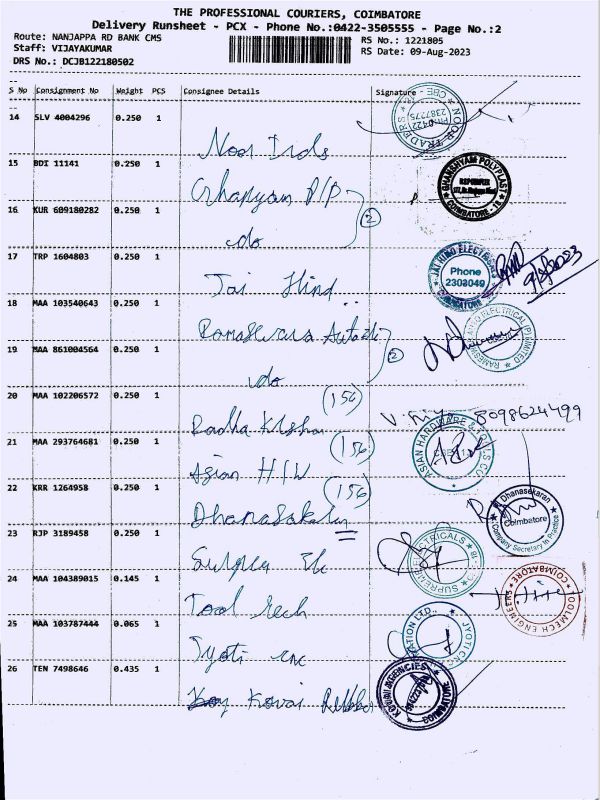 THE PROFESSIONAL COURIERS, COIMBATORE
Delivery Runsheet - PCX - Phone No.:0422-3505555 - Page No.:2
Route: NANJAPPA RD BANK CMS
RS No.: 1221805
Staff: VIJAYAKUMAR
RS Date: 09-Aug-2023
DRS No.: DCJB122180502
S No Consignment No Weight PCS Consignee Details Signature
14 SLV 4004296 0.250 1
NOOR TRADERS CBE
2387775
15 BDI 11141 0.250 1
GHANSHYAM POLYPLAST
COIMBATORE - 18
16 KUR 609180282 0.250 1
(2)
do
17 TRP 1604803 0.250 1
Jai Hind
JAI HIND ELECTRICALS
Phone
2303049
COIMBATORE
9/8/2023
18 MAA 103540643 0.250 1
19 MAA 861004564 0.250 1
(2)
do
20 MAA 102206572 0.250 1
(156)
Radha Krishna
8098624499
21 MAA 293764681 0.250 1
(156)
Asian H/W
ASIAN HARDWARE & TOOLS CO
22 KRR 1264958 0.250 1
(156)
Dhanasakaran
Dhanasekaran
Coimbatore
Company Secretary In Practice
23 RJP 3189458 0.250 1
24 MAA 104389015 0.145 1
Tool tech
TOOLMECH ENGINEERS
COIMBATORE
25 MAA 103787444 0.065 1
Jyoti cnc
JYOTI CNC
ATION LTD.
26 TEN 7498646 0.435 1
Kovai Rubber
COIMBATORE